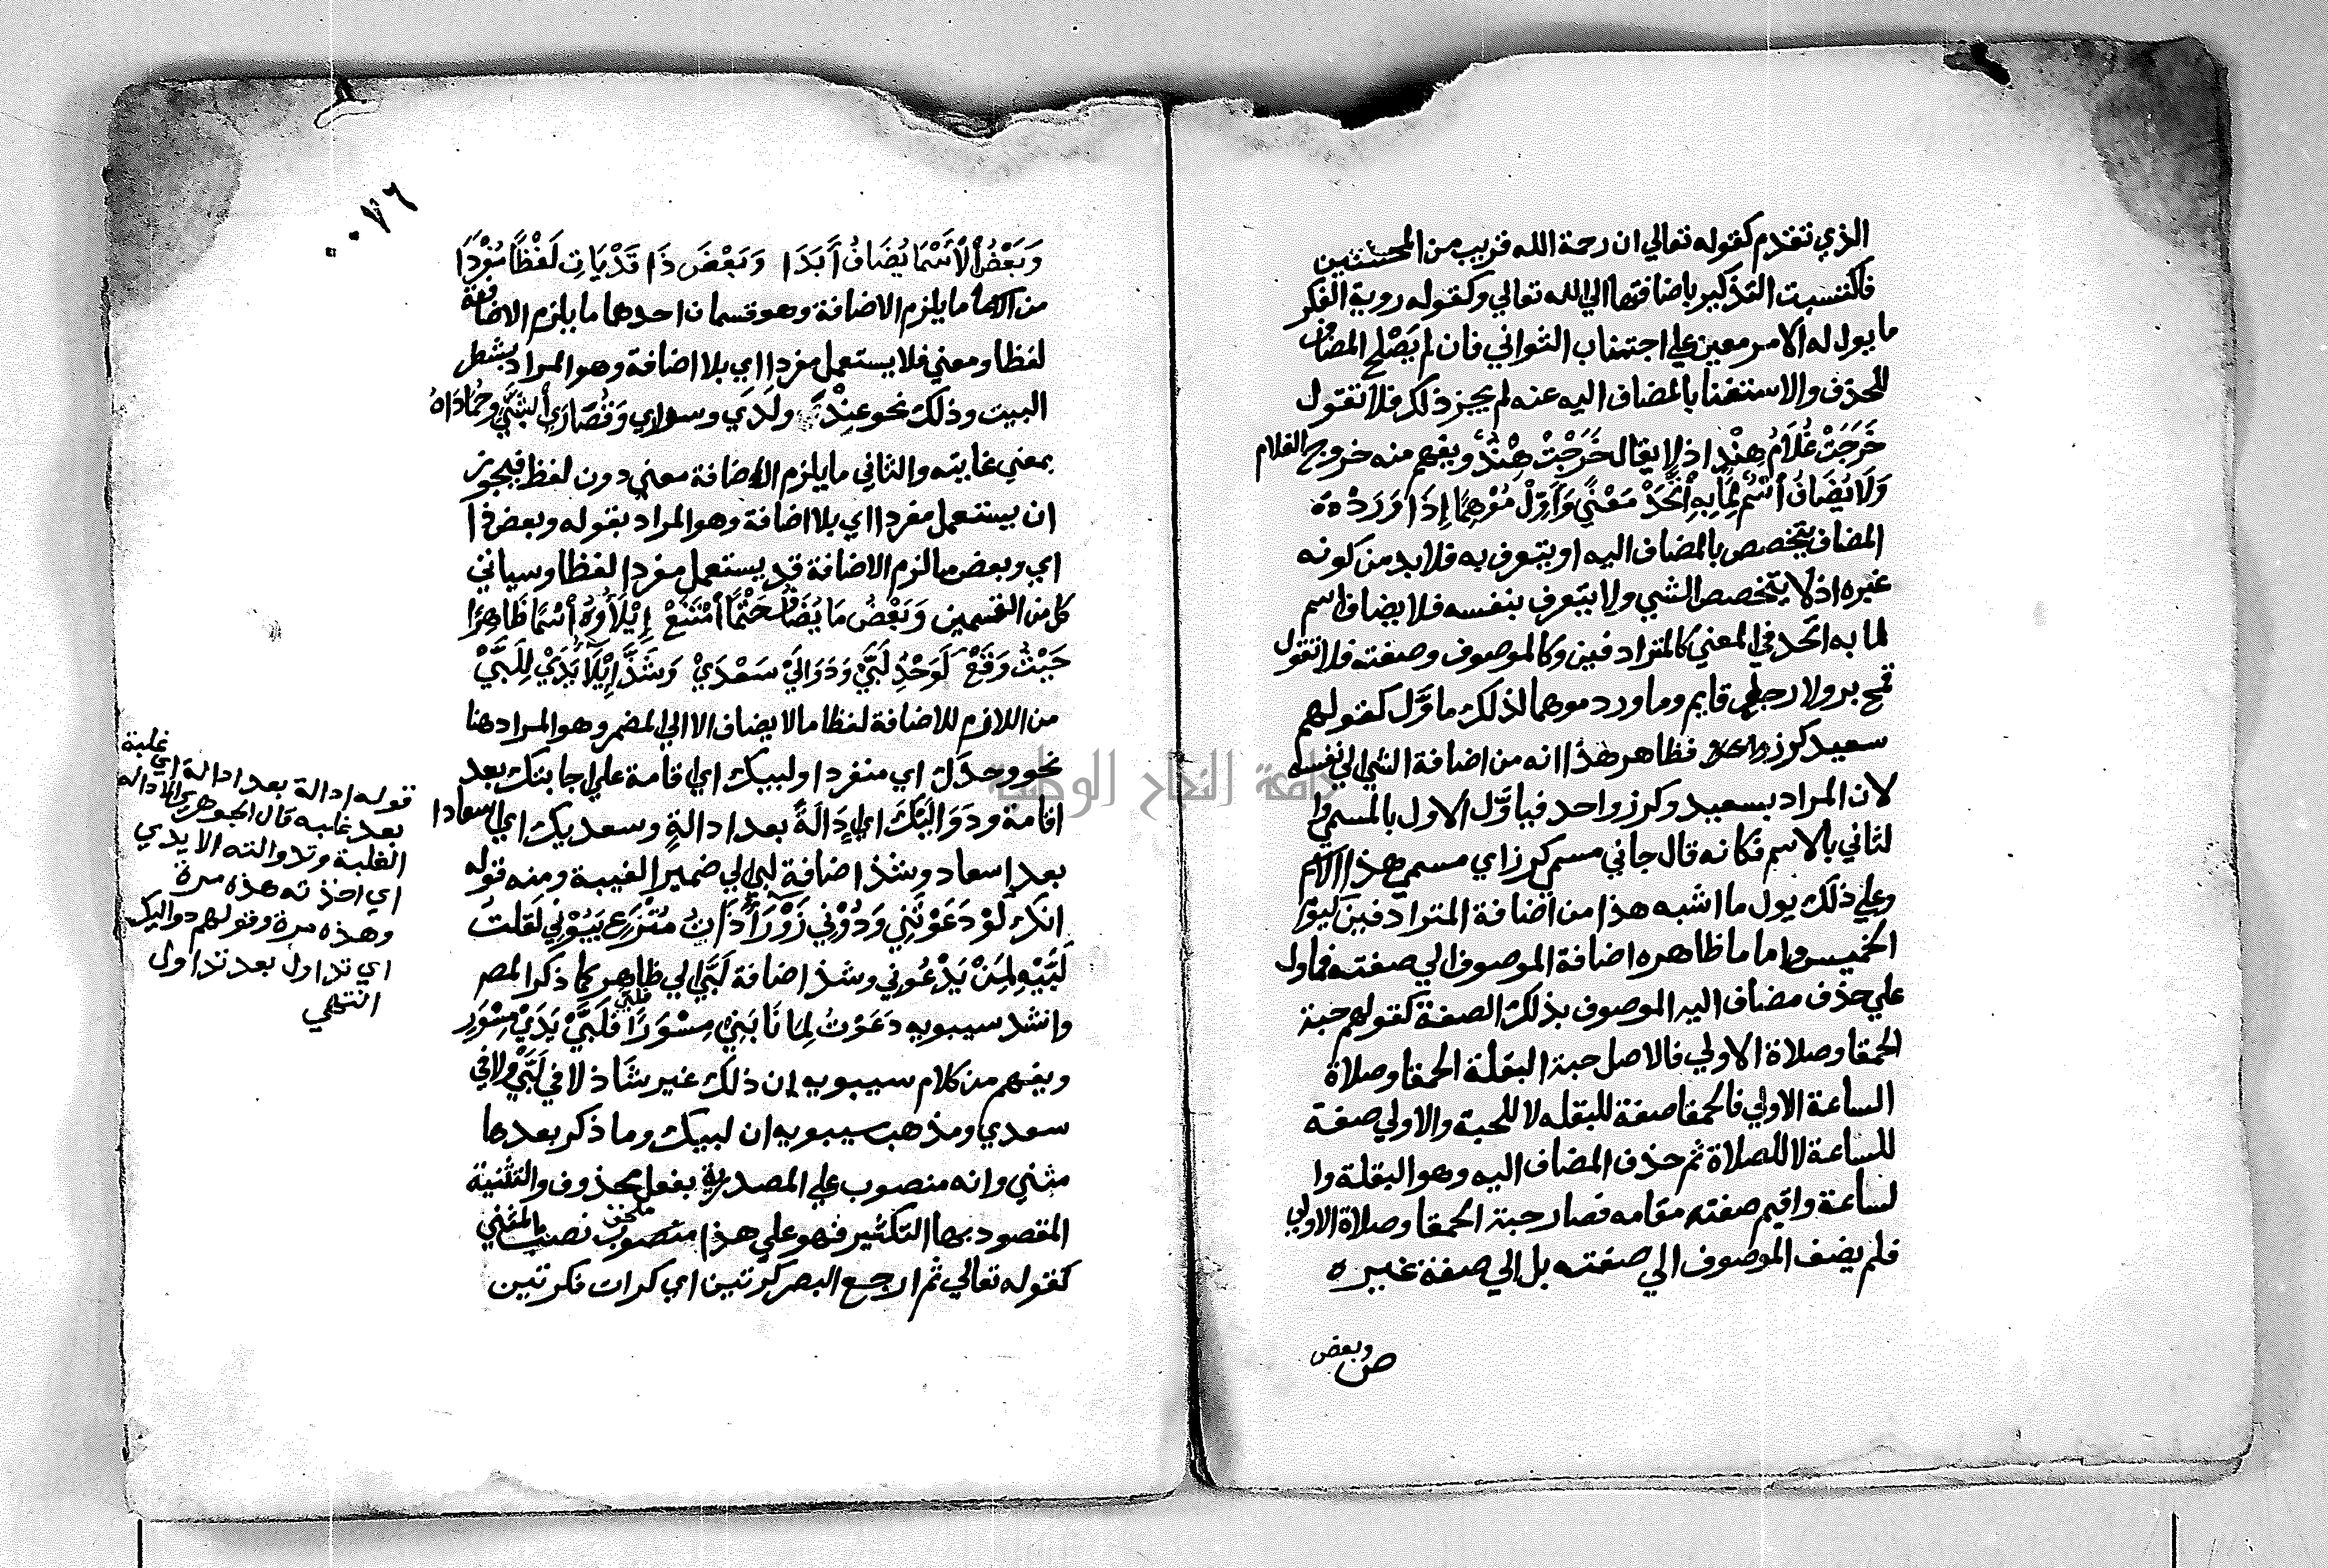 الذي تقدم كقوله تعالي ان رحمة الله قريب من المحسنين
فاكتسبت التذكير باضافتها الي الله تعالي وكقوله روية الفكر
ما يول له الامر معين علي اجتناب التواني فان لم يَصْلح المضاف
للحذف والاستغنا بالمضاف اليه عنه لم يجز ذلك فلا تقول
خَرَجَتْ غُلَامُ هِنْدٍ اذ لا يقال خَرَجَتْ هِنْدٌ ويفهم منه خروج الغلام
وَلَا يُضَافُ اسْمٌ لِمَا بِهِ اتَّحَدْ مَعْنًي وَأَوِّلْ مُوْهِمًا إِذَا وَرَدْ
المضاف يتخصص بالمضاف اليه او يتعرف به فلا بد من كونه
غيره اذ لا يتخصص الشي ولا يتعرف بنفسه فلا يضاف اسم
لما به اتحد في المعني كالمترادفين وكالموصوف وصفته فلا تقول
قمح بر ولا رجل قايم وما ورد موهما لذلك ماوَّل كقولهم
سعيد كرز فظاهر هذا انه من اضافة الشي الي نفسه
لان المراد بسعيد وكرز واحد فياوَّل الاول بالمسمي وا
لثاني بالاسم فكانه قال جاني مسمي كرز اي مسمي هذا الاسم
وعلي ذلك يول ما اشبه هذا من اضافة المترادفين كيوم
الخميس واما ما ظاهره اضافة الموصوف الي صفته فماول
علي حذف مضاف اليه الموصوف بذلك الصفة كقولهم حبة
الحمقا وصلاة الاولي فالاصل حبة البقلة الحمقا وصلاة
الساعة الاولي فالحمقا صفة للبقله لا للحبة والاولي صفة
للساعة لا للصلاة ثم حذف المضاف اليه وهو البقلة وا
لساعة واقيم صفته مقامه فصار حبة الحمقا وصلاة الاولي
فلم يضف الموصوف الي صفته بل الي صفة غيره
وبعض
ص
٠٠٧٦
وَبَعْضُ الْأَسْمَا يُضَافُ أَبَدَا وَبَعْضُ ذَا قَدْ يَاتِ لَفْظًا مُفْرَدَا
من الاسما ما يلزم الاضافة وهو قسمان احدهما ما يلزم الاضافة
لفظا ومعني فلا يستعمل مفردا اي بلا اضافة وهو المراد بشطر
البيت وذلك نحو عِنْد ولَدَي وسواي وَقُصَارَي الشَّيْ وَحُمَادَاهُ
بمعني غايته والثاني ما يلزم الاضافة معني دون لفظ فيجوز
ان يستعمل مفردا اي بلا اضافة وهو المراد بقوله وبعض ذا
اي وبعض ما لزم الاضافة قد يستعمل مفردا لفظا وسياتي
كل من القسمين وَبَعْضُ مَا يُضَافُ حَتْمًا امْتَنَعْ إِيْلَاؤُهُ أسْمًا ظَاهِرًا
حَيْثُ وَقَعْ كَوَحْدِ لَبَّيْ وَدَوَالَيْ سَعْدَيْ وَشَذَّ إِيْلَا يَدَيْ لِلَبَّيْ
من اللازم للاضافة لفظا ما لا يضاف الا الي المضمر وهو المراد هنا
نحو وحدَك اي منفردا ولبيك اي اقامة علي اجابتك بعد
اقامة ودَوَالَيْك اي إِدَالَةً بعد ادالةٍ وسعديك اي اسعادا
بعد اسعاد وشذ اضافة لبي الي ضمير الغيبة ومنه قوله
انك لَوْ دَعَوْتَنِي وَدُوْنِي زَوْرَاُ ذَاتُ مُتْرَعٍ بَيُوْنِ لَقلتُ
لَبَّيْهِ لِمَنْ يَدْعُوني وشذ اضافة لَبَّيْ الي ظاهر كما ذكر المص
وانشد سيبويه دَعَوْتُ لِمَا نَا بَنِيْ مِسْوَرَا فَلَبَّيْ فَلَبَّيْ يَدَيْ مِسْوَرِ
ويفهم من كلام سيبويه ان ذلك غير شاذ لا في لَبَّيْ ولا في
سعدي ومذهب سيبويه ان لبيك وما ذكر بعدها
مثني وانه منصوب علي المصدرية بفعل محذوف والتثنية
المقصود بها التكثير فهو علي هذا ملحق بالمثني
كقوله تعالي ثم ارجع البصر كرتين اي كرات فكرتين
قوله ادالة بعد ادالة اي غلبة
بعد غلبه قال الجوهري الادالة
الغلبة وتداولته الايدي
اي اخذته هذه مرة
وهذه مرة وقولهم دواليك
اي تداول بعد تداول
انتهي
جامعة النجاح الوطنية